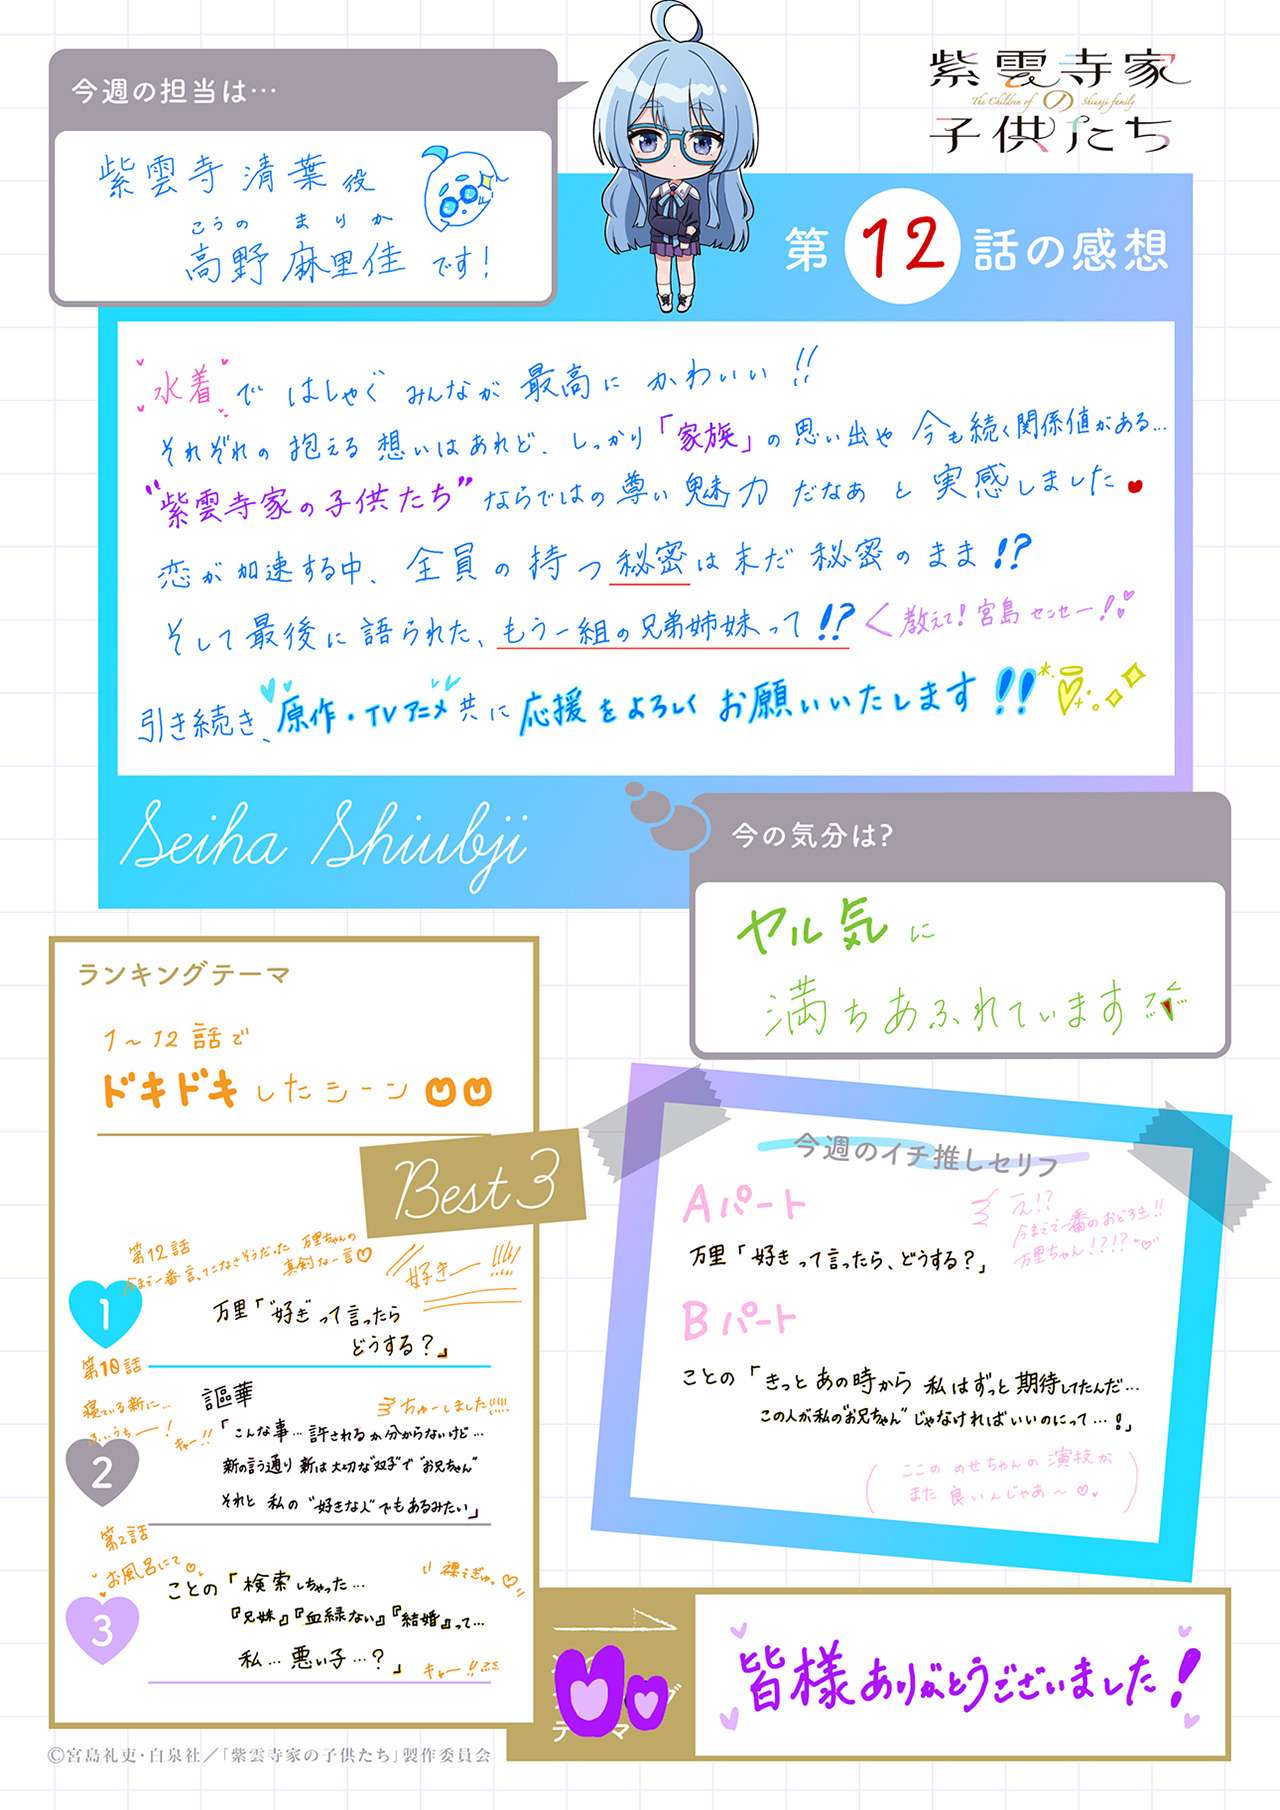 今週の担当は…
紫雲寺家
The Children of の Shiunji family
子供たち
紫雲寺 清葉 役
こうの まりか
高野 麻里佳 です!
第12話の感想
水着 で はしゃぐ みんなが 最高に かわいい!!
それぞれの 抱える 想いはあれど、しっかり「家族」の 思い出や 今も続く関係値がある…
“紫雲寺家の子供たち” ならではの 尊い 魅力 だなあ と 実感しました
恋が 加速する中、全員の 持つ 秘密は未だ 秘密のまま!?
そして最後に 語られた、もう一組の兄弟姉妹って!? <教えて!宮島センセー!
引き続き、原作・TVアニメ共に 応援をよろしく お願いいたします!!
Seiha Shiubji
今の気分は?
ヤル気に
満ちあふれています
ランキングテーマ
1~12話で
ドキドキしたシーン
Best3
第12話
万里ちゃんの
真剣な一言♡
好きー!!!
1
万里「“好き”って言ったら
どうする?」
第10話
寝ている新に…
ふいうちー!
キャー!!
ちゅーしました!!!!
2
謳華
「こんな事…許されるか分からないけど…
新の言う通り 新は大切な“双子”で“お兄ちゃん”
それと 私の“好きな人”でもあるみたい」
第2話
お風呂にて♡
裸でぎゅっ♡
3
ことの「検索しちゃった…
『兄妹』『血縁ない』『結婚』って…
私…悪い子…?」
キャー!!
今週のイチ推しセリフ
Aパート
え!?
今まで一番のおどろき!!
万里ちゃん!?!?
万里「好きって言ったら、どうする?」
Bパート
ことの「きっと あの時から 私はずっと期待してたんだ…
この人が私の“お兄ちゃん”じゃなければいいのにって…!」
(ここの のせちゃんの演技が
また 良いんじゃあ~♡)
テーマ
皆様ありがとうございました!
©宮島礼吏・白泉社/「紫雲寺家の子供たち」製作委員会